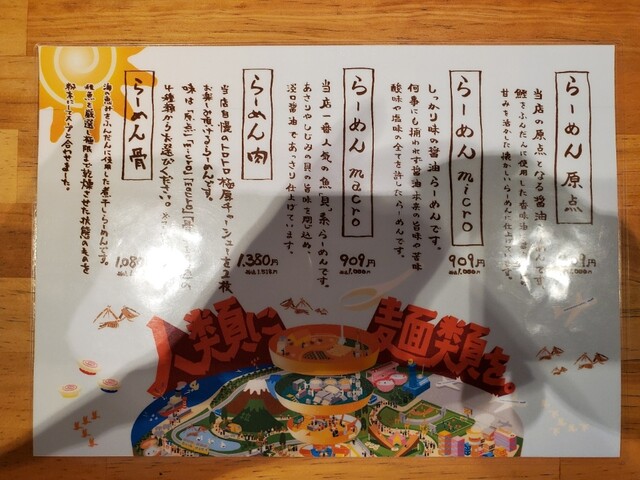 らーめん 原点
当店の原点となる醤油らーめんです。
鰹をふんだんに使用した香味油
甘みを活かした懐かしいらーめんに仕上げています。
909円
税込1,000円
らーめん micro
しっかり味の醤油らーめんです。
何事にも捕われず醤油本来の旨味や苦味
酸味や塩味の全てを許したらーめんです。
909円
税込1,000円
らーめん macro
当店一番人気の魚「貝」系らーめんです。
あさりやしじみの貝の旨味を閉じ込め、
淡口醤油であっさり仕上げています。
909円
税込1,000円
らーめん 肉
当店自慢のトロトロ極厚チャーシューを2枚
お楽しみ頂けるらーめんです。
味は「原点」「micro」「macro」「骨」
4種類からお選びください。
1,380円
税込1,518円
らーめん 骨
海の恵みをふんだんに使用した煮干しらーめんです。
粉末にしスープと合わせました。
1,080円
人類に麺類を。